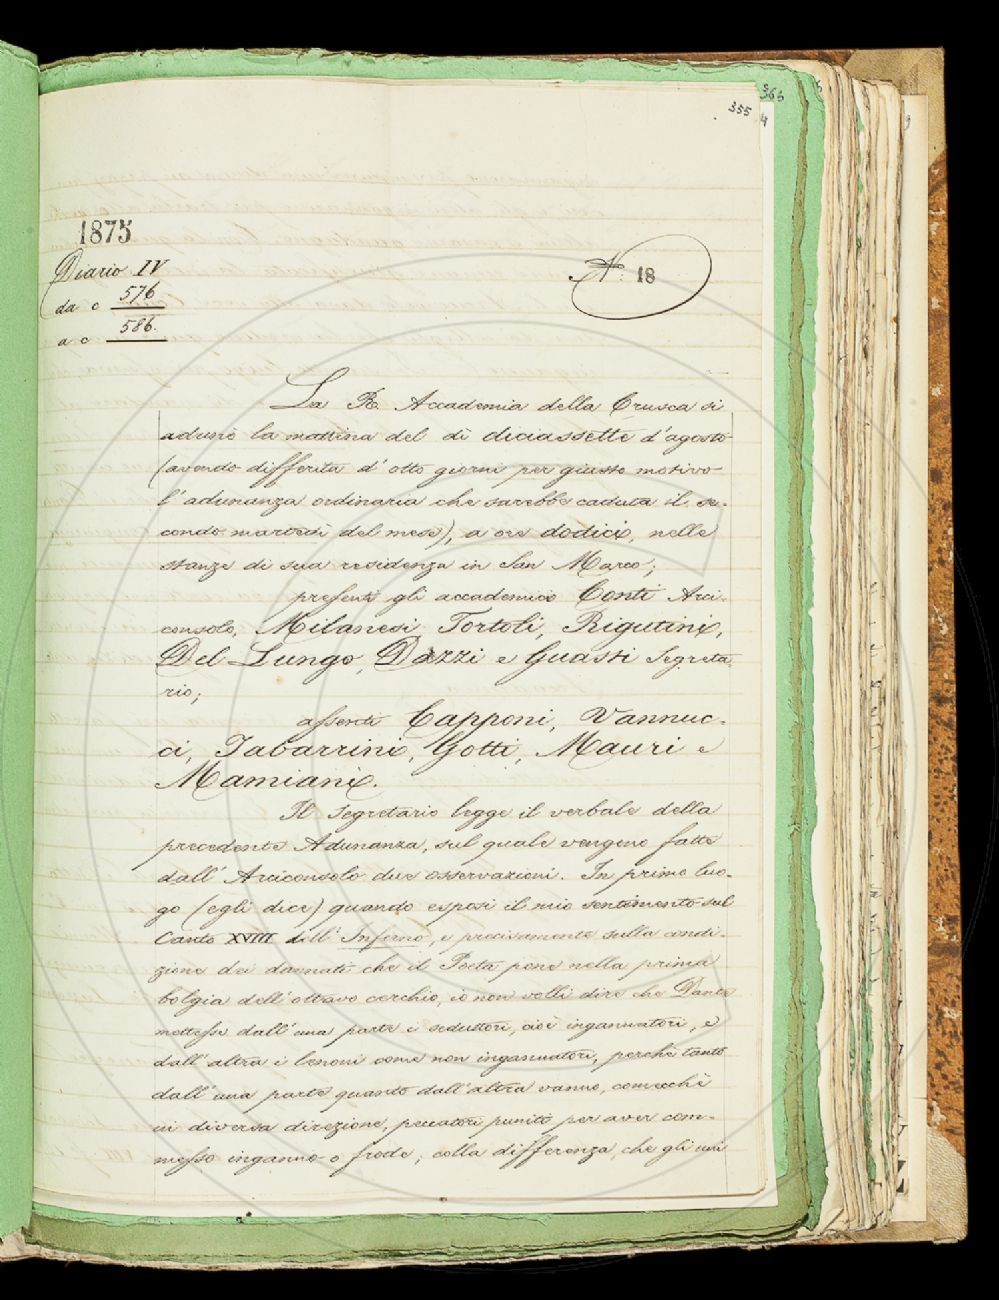 366
355
4
1875
Diario IV
da c 576
a c 586.
N.: 18
La R. Accademia della Crusca si
adunò la mattina del dì diciassette d'agosto
(avendo differita d'otto giorni per giusto motivo
l'adunanza ordinaria che sarebbe caduta il se-
condo martedì del mese), a ore dodici, nelle
stanze di sua residenza in San Marco;
presenti gli accademici Conti Arci-
consolo, Milanesi, Tortoli, Rigutini,
Del Lungo, Dazzi e Guasti Segreta-
rio;
assenti Capponi, Vannuc-
ci, Tabarrini, Gotti, Mauri e
Mamiani.
Il Segretario legge il verbale della
precedente Adunanza, sul quale vengono fatte
dall'Arciconsolo due osservazioni. In primo luo-
go (egli dice) quando esposi il mio sentimento sul
Canto XVIII dell'Inferno, e precisamente sulla condi-
zione dei dannati che il Poeta pone nella prima
bolgia dell'ottavo cerchio, io non volli dire che Dante
mettesse dall'una parte i seduttori, cioè ingannatori, e
dall'altra i lenoni come non ingannatori, perchè tanto
dall'una parte quanto dall'altra vanno, comecchè
in diversa direzione, peccatori puniti per aver com-
messo inganno o frode; colla differenza, che gli uni